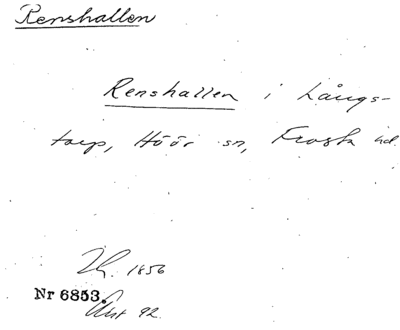 Renshallen
Renshallen i Långs-
torp, Höör sn, Frosta hd.
1856
Nr 6853.
Avt 92.